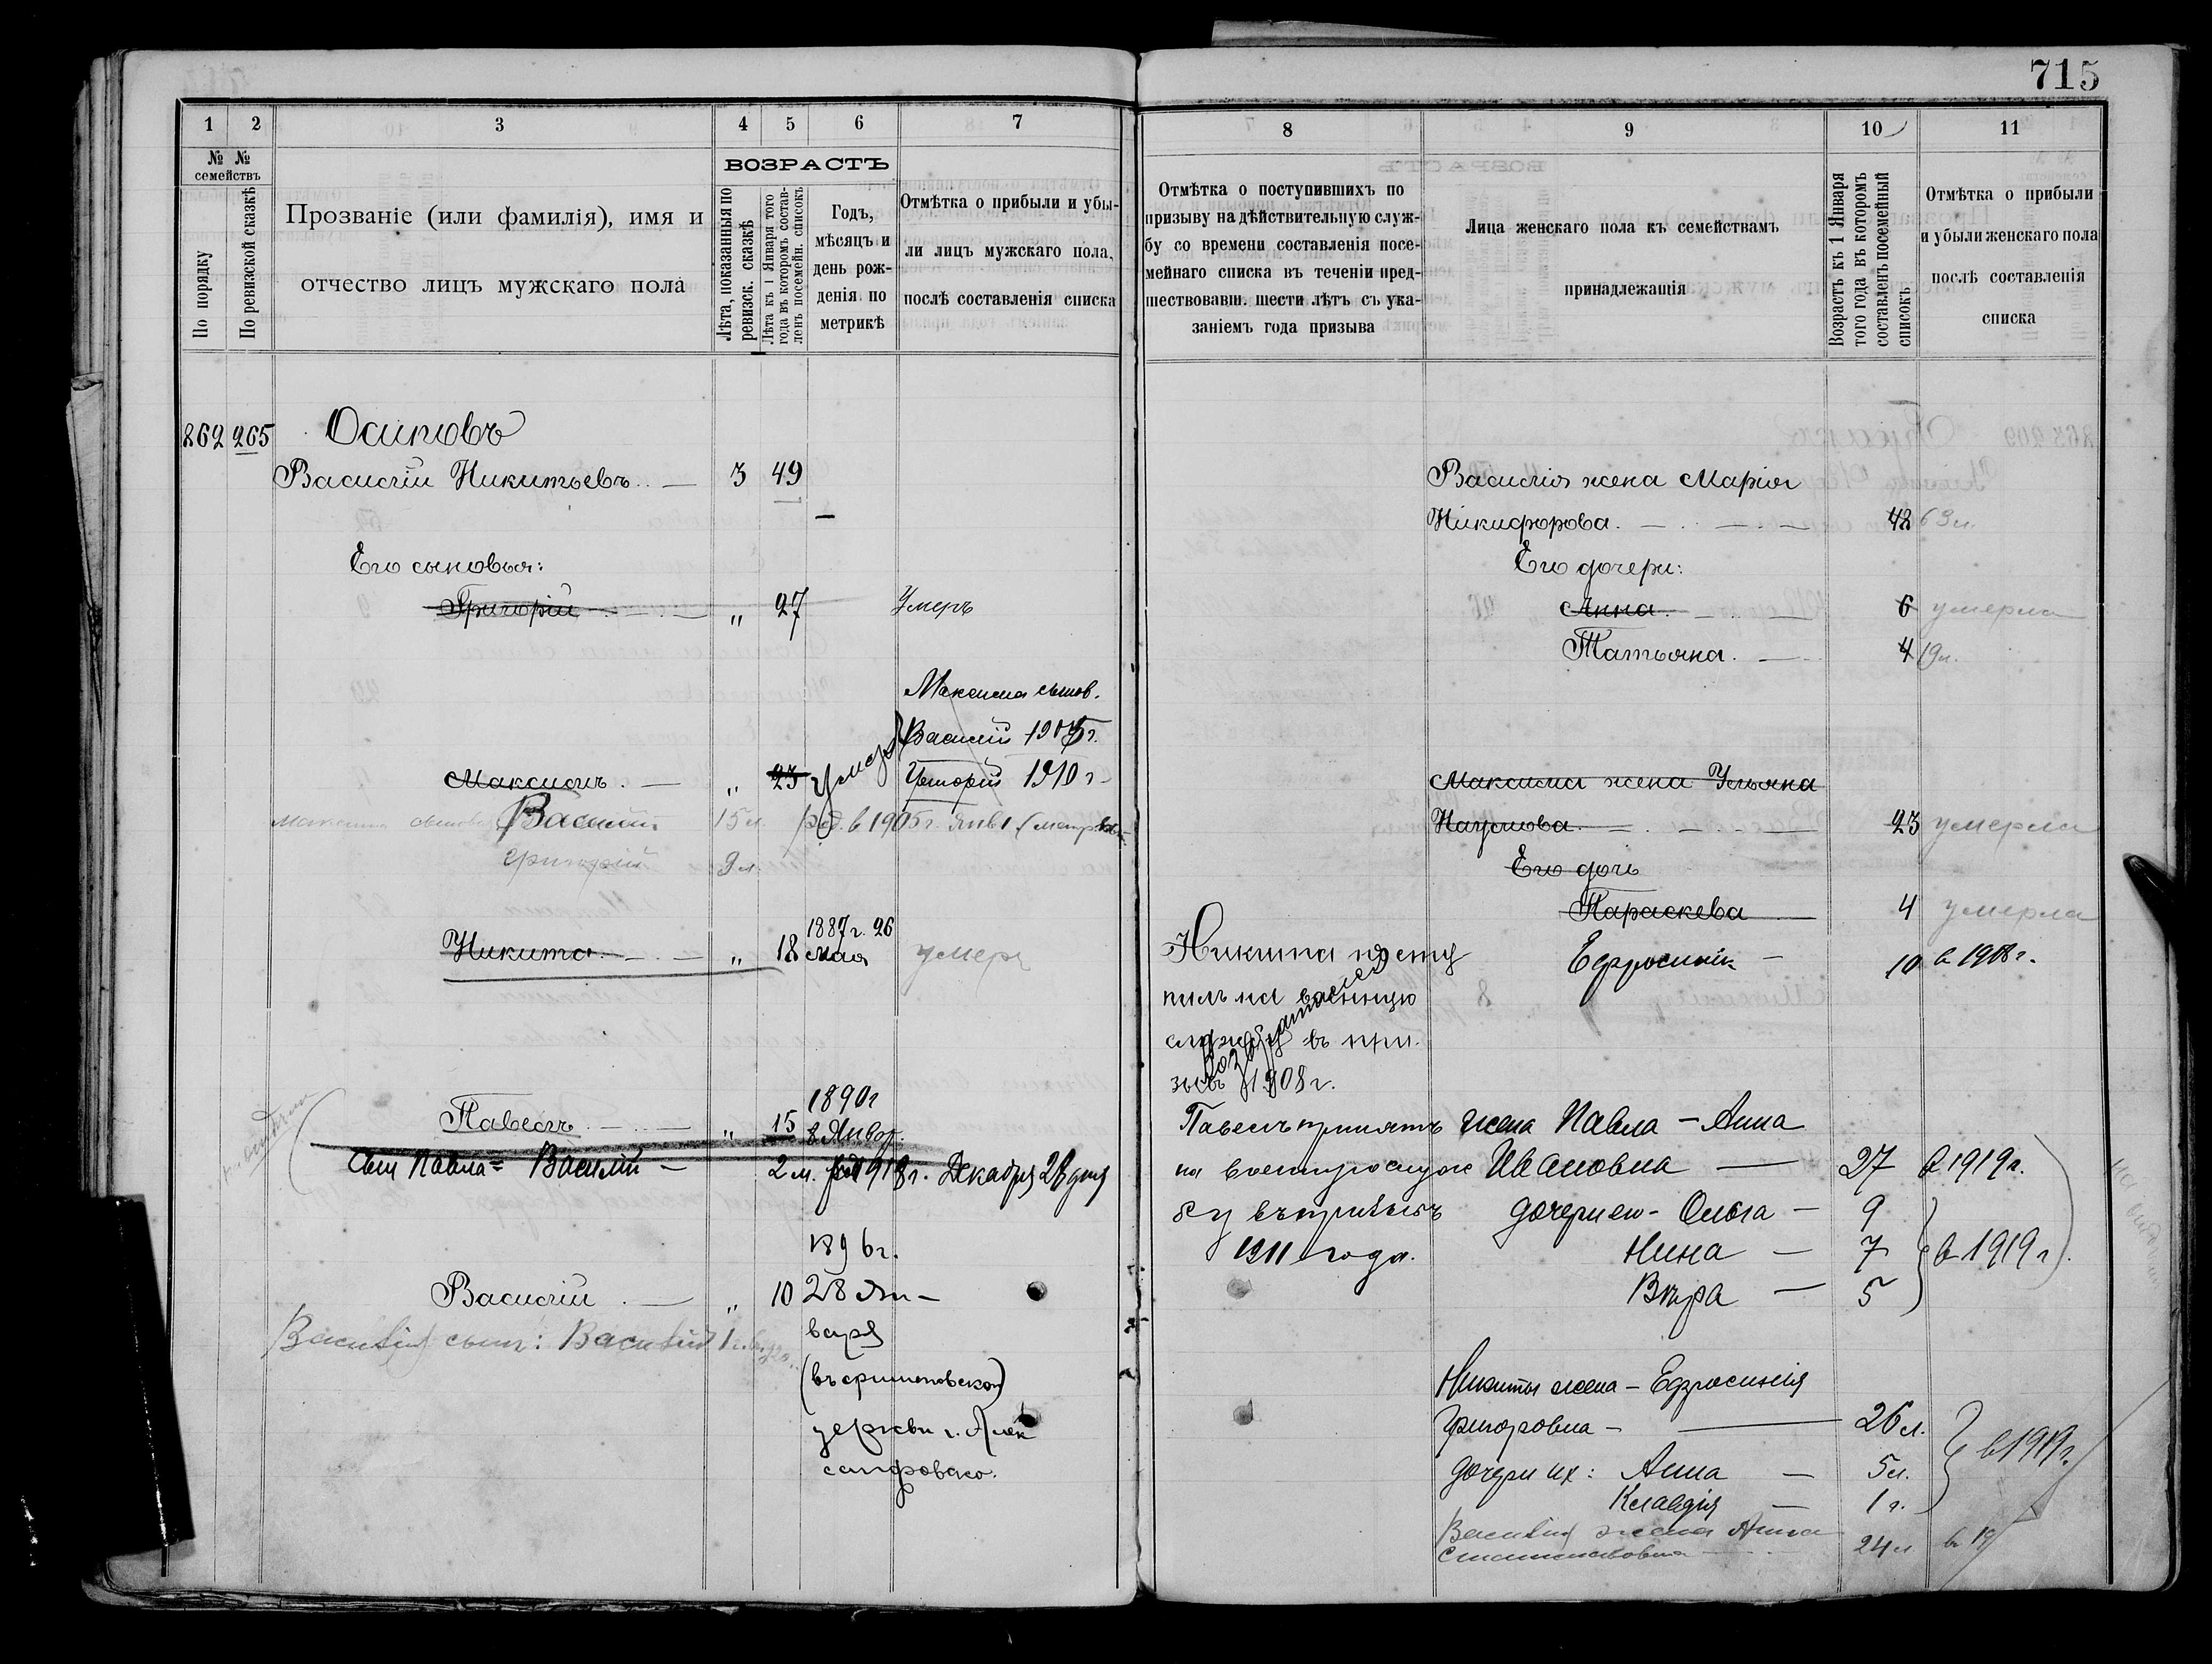 715
1 2 3 4 5 6 7
№ № семействъ
По порядку
По ревизской сказкѣ
Прозваніе (или фамилія), имя и
отчество лицъ мужскаго пола
ВОЗРАСТЪ
Лѣта, показанныя по
ревизск. сказкѣ
Лѣта къ 1 Января того
года въ которомъ состав-
ленъ посемейн. списокъ
Годъ,
мѣсяцъ и
день рож-
денія по
метрикѣ
Отмѣтка о прибыли и убы-
ли лицъ мужскаго пола,
послѣ составленія списка
262 265 Осиповъ
Василій Никитьевъ 3 49
Его сыновья:
Григорій „ 27 Умеръ
Максима сынов.
Василій 1905 г.
Григорій 1910 г
Максимъ „ 23 умеръ
Максима сыновья Василій 15 л. род. в 1905 г. янв 1
Григорій 9 л.
1887 г. 26
Никита „ 18 мая умеръ
1890 г
Павелъ „ 15 8 Январ.
Сын Павла = Василій 2 м. род 1918 г. Декабря 28 дня
1896 г.
Василій „ 10 28 Ян-
варя
Василія сынъ: Василій 1
(въ
церкви г. Алек
сандровска.
8 9 10 11
Отмѣтка о поступившихъ по
призыву на дѣйствительную служ-
бу со времени составленія посе-
мейнаго списка въ теченіи пред-
шествовавш. шести лѣтъ съ ука-
заніемъ года призыва
Лица женскаго пола къ семействамъ
принадлежащія
Возрастъ къ 1 Января
того года въ которомъ
составленъ посемейный
списокъ
Отмѣтка о прибыли
и убыли женскаго пола
послѣ составленія
списка
Василія жена Марія
Никифорова 48 63 л.
Его дочери:
Анна 6 умерла
Татьяна 4 19 л.
Максима жена Ульяна
Наумова 23 умерла
Его дочь
Параскева 4 умерла
Никита посту
пилъ на военную
службу въ при
зывъ 1908 г.
Ефросинія 10 в 1908 г.
Павелъ принятъ
на военную служ
бу въ призывъ
1911 года.
жена Павла - Анна
Ивановна 27 в 1919 г.
дочери ею - Ольга 9
Нина 7 в 1919 г.
Вѣра 5
Никиты жена - Ефросинія
Григоровна 26 л.
дочери их: Анна 5 л. в 1919 г.
Клавдія 1 г.
Василія жена Анна
24 л в 19